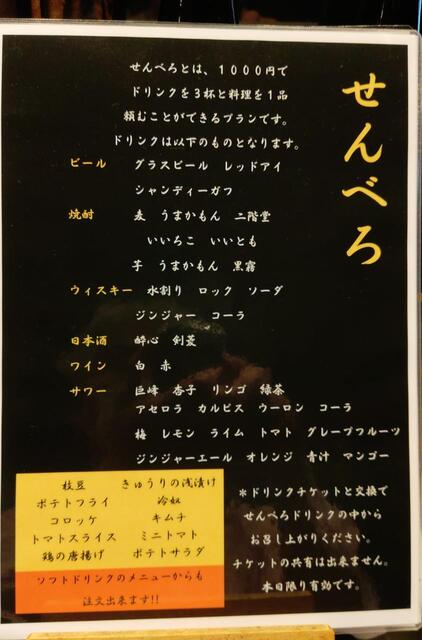 せんべろ
せんべろとは、1000円で
ドリンクを3杯と料理を1品
頼むことができるプランです。
ドリンクは以下のものとなります。
ビール グラスビール レッドアイ
シャンディーガフ
焼酎 麦 うまかもん 二階堂
いいろこ いいとも
芋 うまかもん 黒霧
ウィスキー 水割り ロック ソーダ
ジンジャー コーラ
日本酒 酔心 剣菱
ワイン 白 赤
サワー 巨峰 杏子 リンゴ 緑茶
アセロラ カルピス ウーロン コーラ
梅 レモン ライム トマト グレープフルーツ
ジンジャーエール オレンジ 青汁 マンゴー
枝豆 きゅうりの浅漬け
ポテトフライ 冷奴
コロッケ キムチ
トマトスライス ミニトマト
鶏の唐揚げ ポテトサラダ
ソフトドリンクのメニューからも
注文出来ます!!
*ドリンクチケットと交換で
せんべろドリンクの中から
お召し上がりください。
チケットの共有は出来ません。
本日限り有効です。